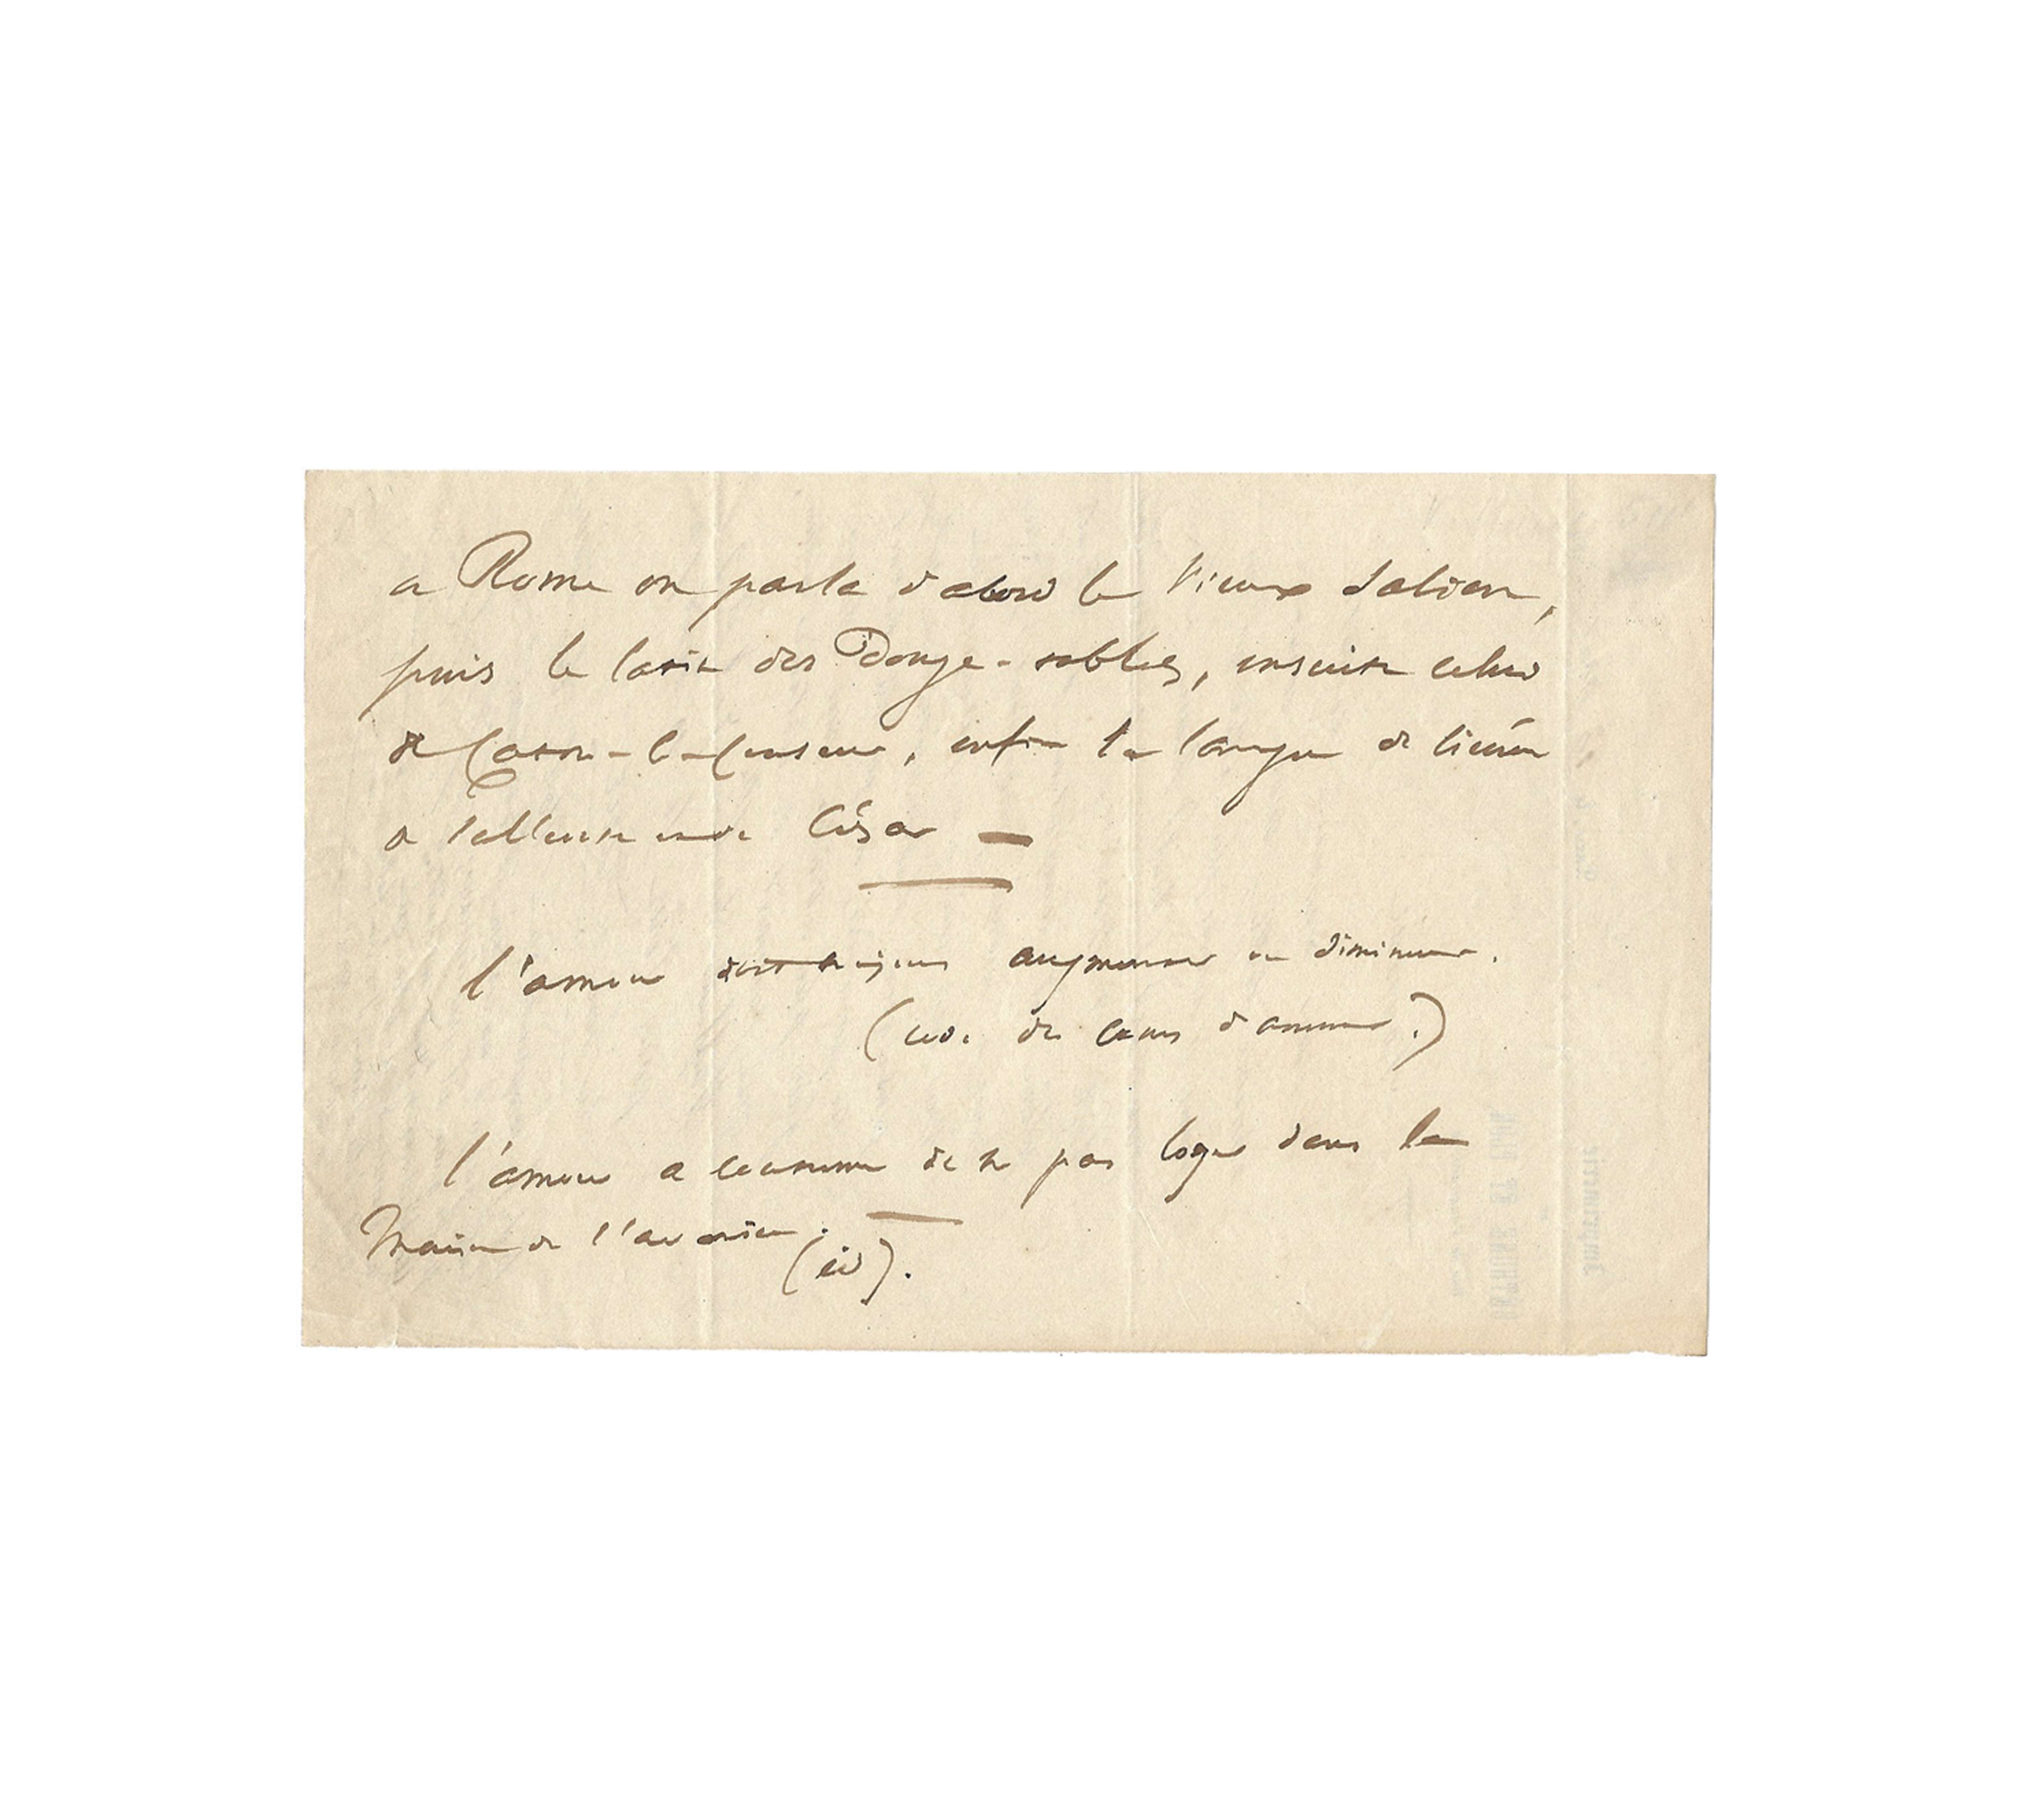 a Rome on parla d'abord le vieux Salien,
puis le latin des Douze-tables, ensuite celui
de Caton-le-Censeur, enfin la langue de Cicéron
de César
l'amour doit toujours augmenter ou diminuer.
(code des cours d'amour.)
l'amour a coutume de ne pas loger dans la
maison de l'avarice.
(id).
Imprimerie